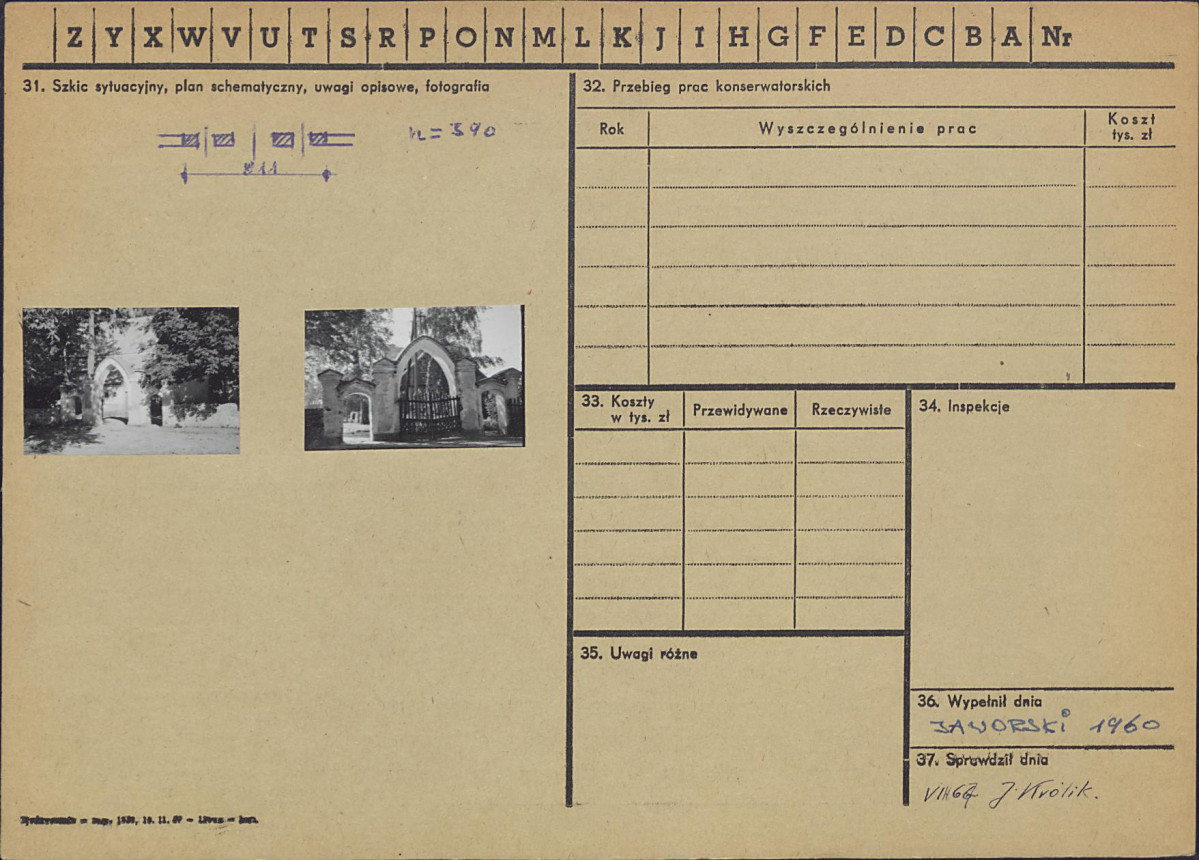 Z Y X W V U T S R P O N M L K J I H G F E D C B A Nr
31. Szkic sytuacyjny, plan schematyczny, uwagi opisowe, fotografia
h = 390
811
32. Przebieg prac konserwatorskich
Rok
Wyszczególnienie prac
Koszt
tys. zł
33. Koszty
w tys. zł
Przewidywane
Rzeczywiste
34. Inspekcje
35. Uwagi różne
36. Wypełnił dnia
JAWORSKI 1960
37. Sprawdził dnia
J. Królik.